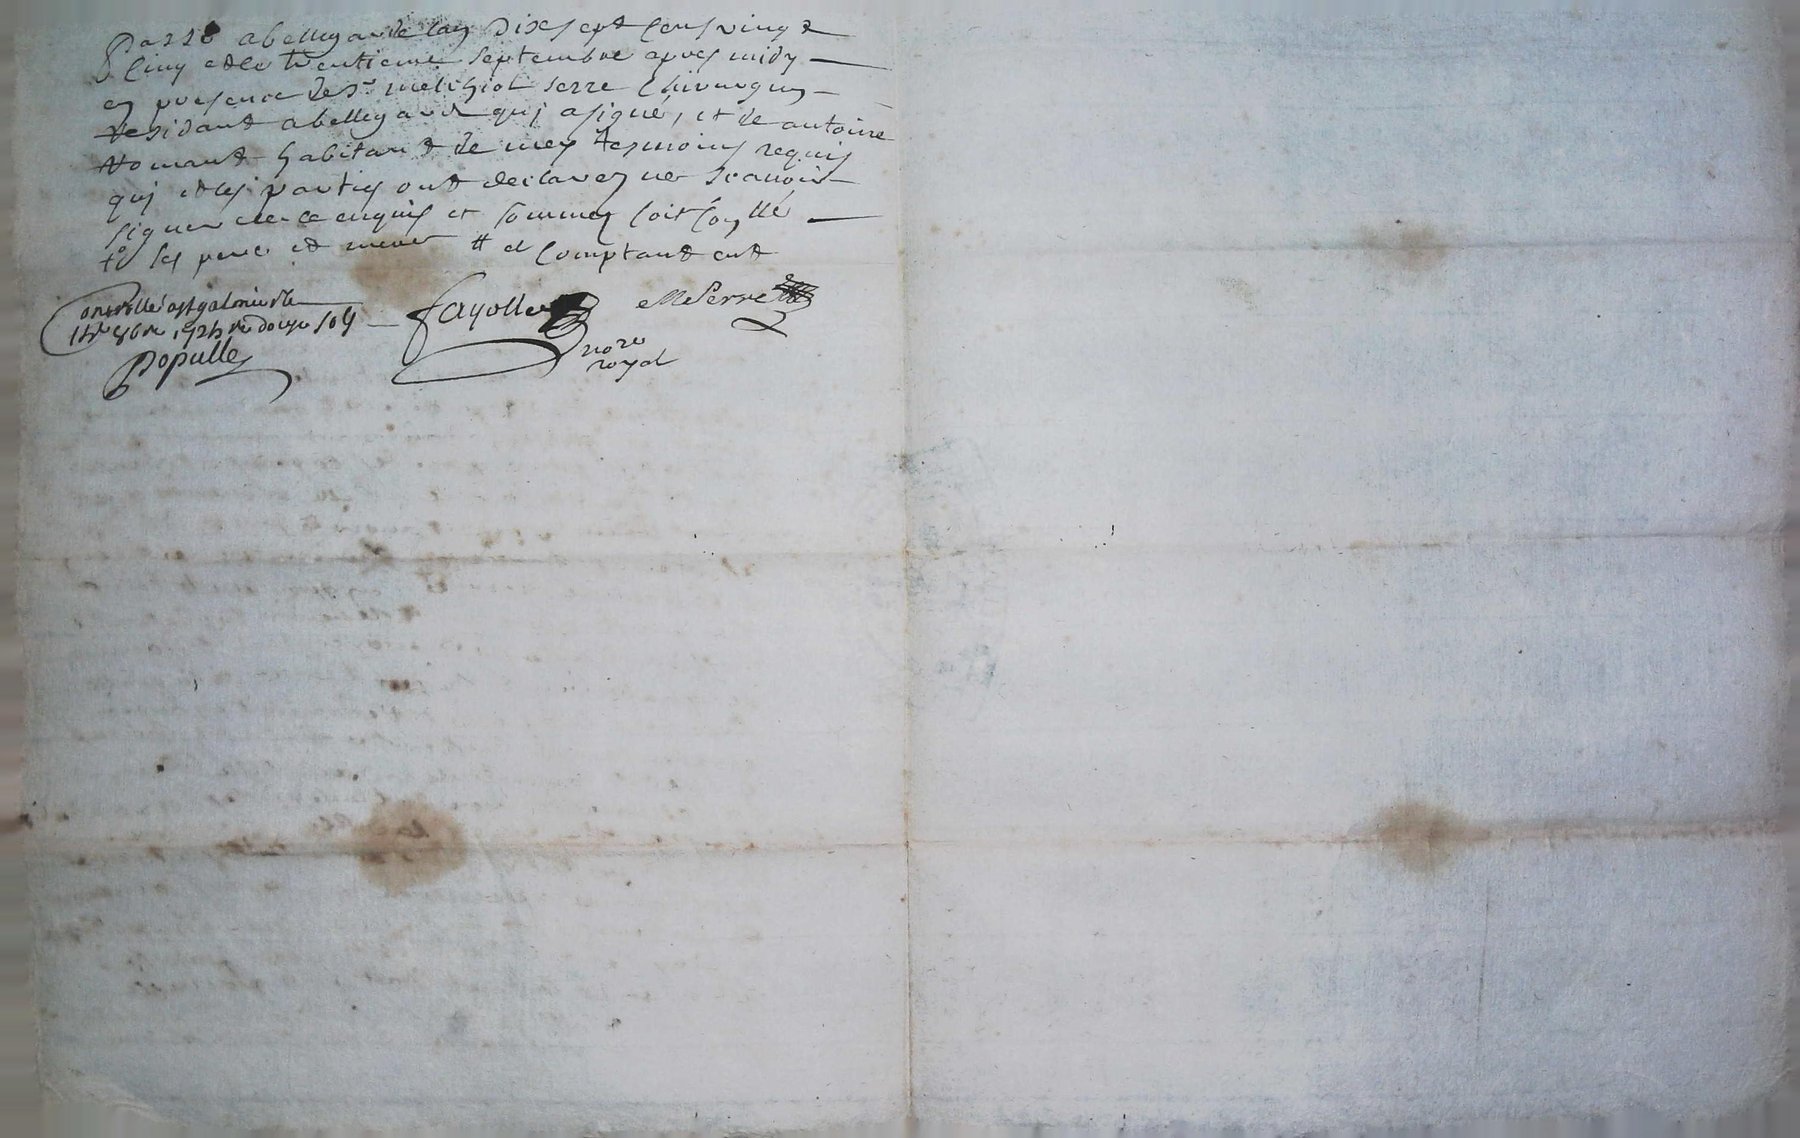 Passé a bellegarde lan Dixsept Cens vingt
Cinq et le trentieme Septembre apres midy
en presence de sr melchiot serre Chirurgien
Residant a bellegarde quj a signé, et de antoine
habitant de mey tesmoins requis
quj et les partyes ont declarez ne scauoir
signer de ce enquis et sommez soit Conllé
ses pere et mere # et Comptant ent
Controllé a st galmier le
14e 8bre 1725 re douze sols
Populle
fayolle
nore
royal
M Serre